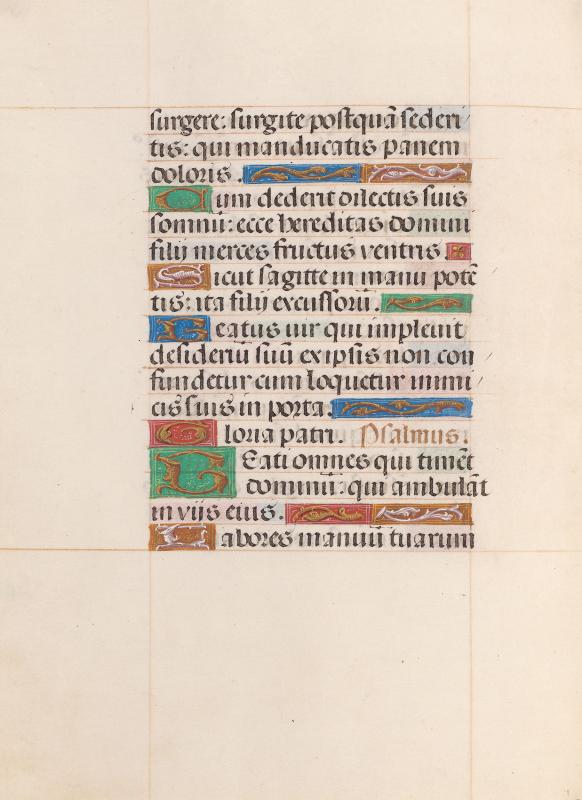 surgere: surgite postquā sederi
tis: qui manducatis panem
doloris.
Cum dederit dilectis suis
somnū: ecce hereditas domini
filij merces fructus ventris.
Sicut sagitte in manu potē
tis: ita filij excussorū.
Beatus uir qui impleuit
desideriū suū ex ipsis non con
fundetur cum loquetur inimi
cis suis in porta
Gloria patri. Psalmus.
Beati omnes qui timēt
dominū: qui ambulāt
in viis eius.
Labores manuū tuarum